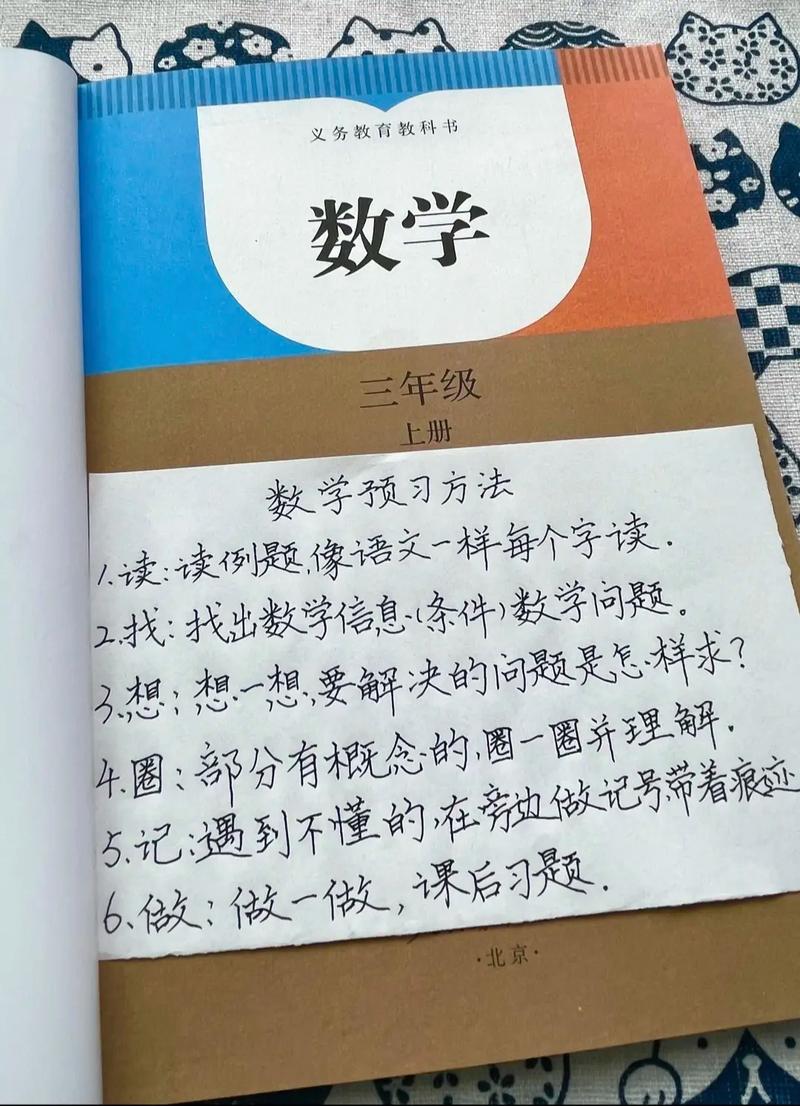 义务教育教科书
数学
三年级
上册
数学预习方法
1.读:读例题,像语文一样每个字读.
2.找:找出数学信息(条件)数学问题。
3.想:想一想,要解决的问题是怎样求?
4.圈:部分有概念的,圈一圈并理解.
5.记:遇到不懂的,在旁边做记号带着痕迹
6.做:做一做,课后习题.
·北京·